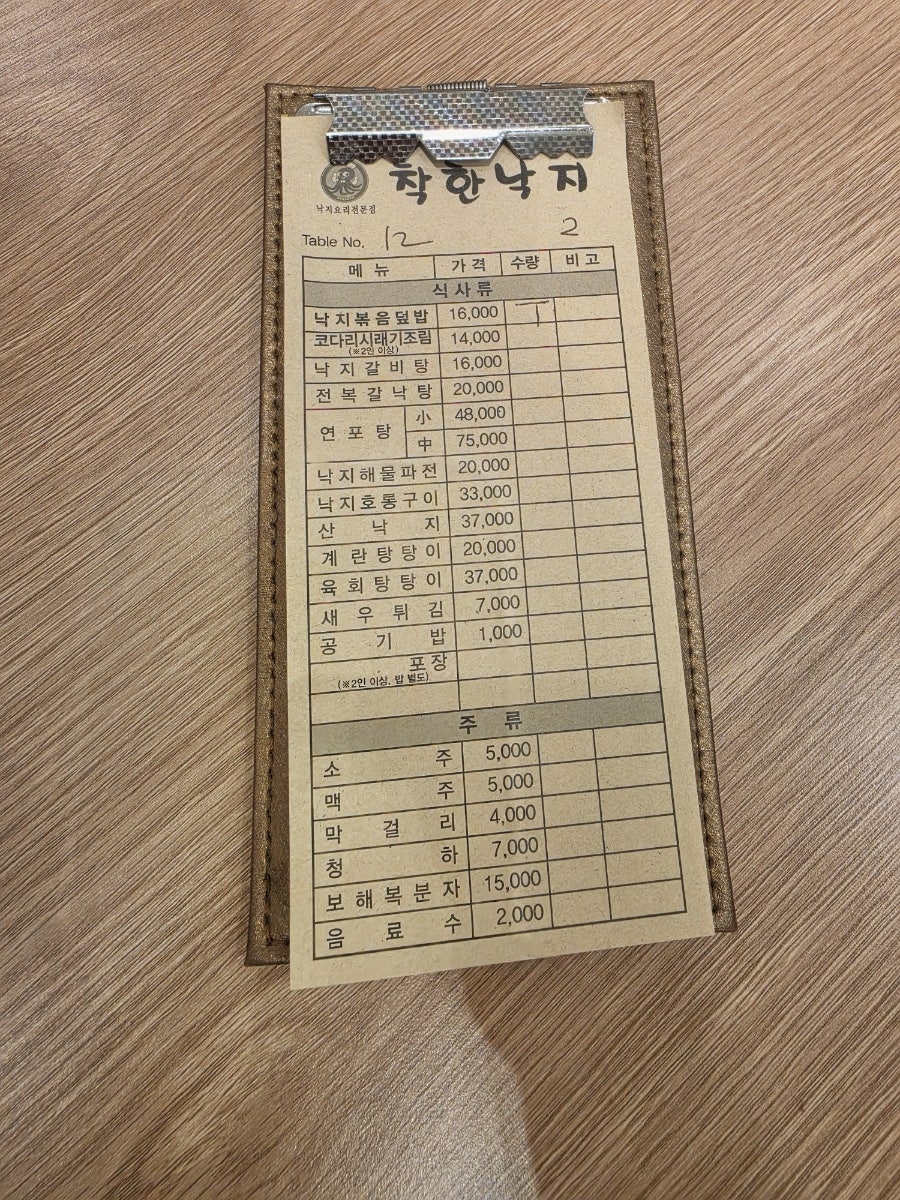 착한낙지
낙지요리전문점
Table No. 12 2
메뉴 가격 수량 비고
식사류
낙지볶음덮밥 16,000
코다리시래기조림 14,000
(※2인 이상)
낙지갈비탕 16,000
전복갈낙탕 20,000
연포탕 小 48,000
中 75,000
낙지해물파전 20,000
낙지호롱구이 33,000
산낙지 37,000
계란탕탕이 20,000
육회탕탕이 37,000
새우튀김 7,000
공기밥 1,000
포장
(※2인 이상, 밥 별도)
주류
소주 5,000
맥주 5,000
막걸리 4,000
청하 7,000
보해복분자 15,000
음료수 2,000